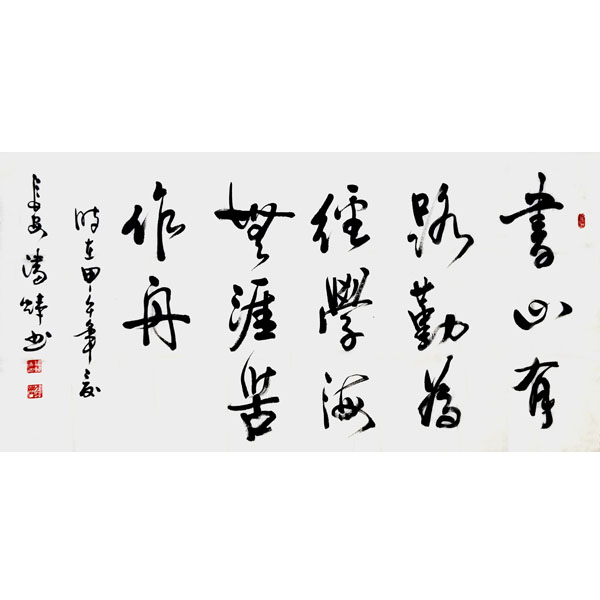 書山有
路勤為
徑學海
無涯苦
作舟
時在甲午年夏
長安潘書